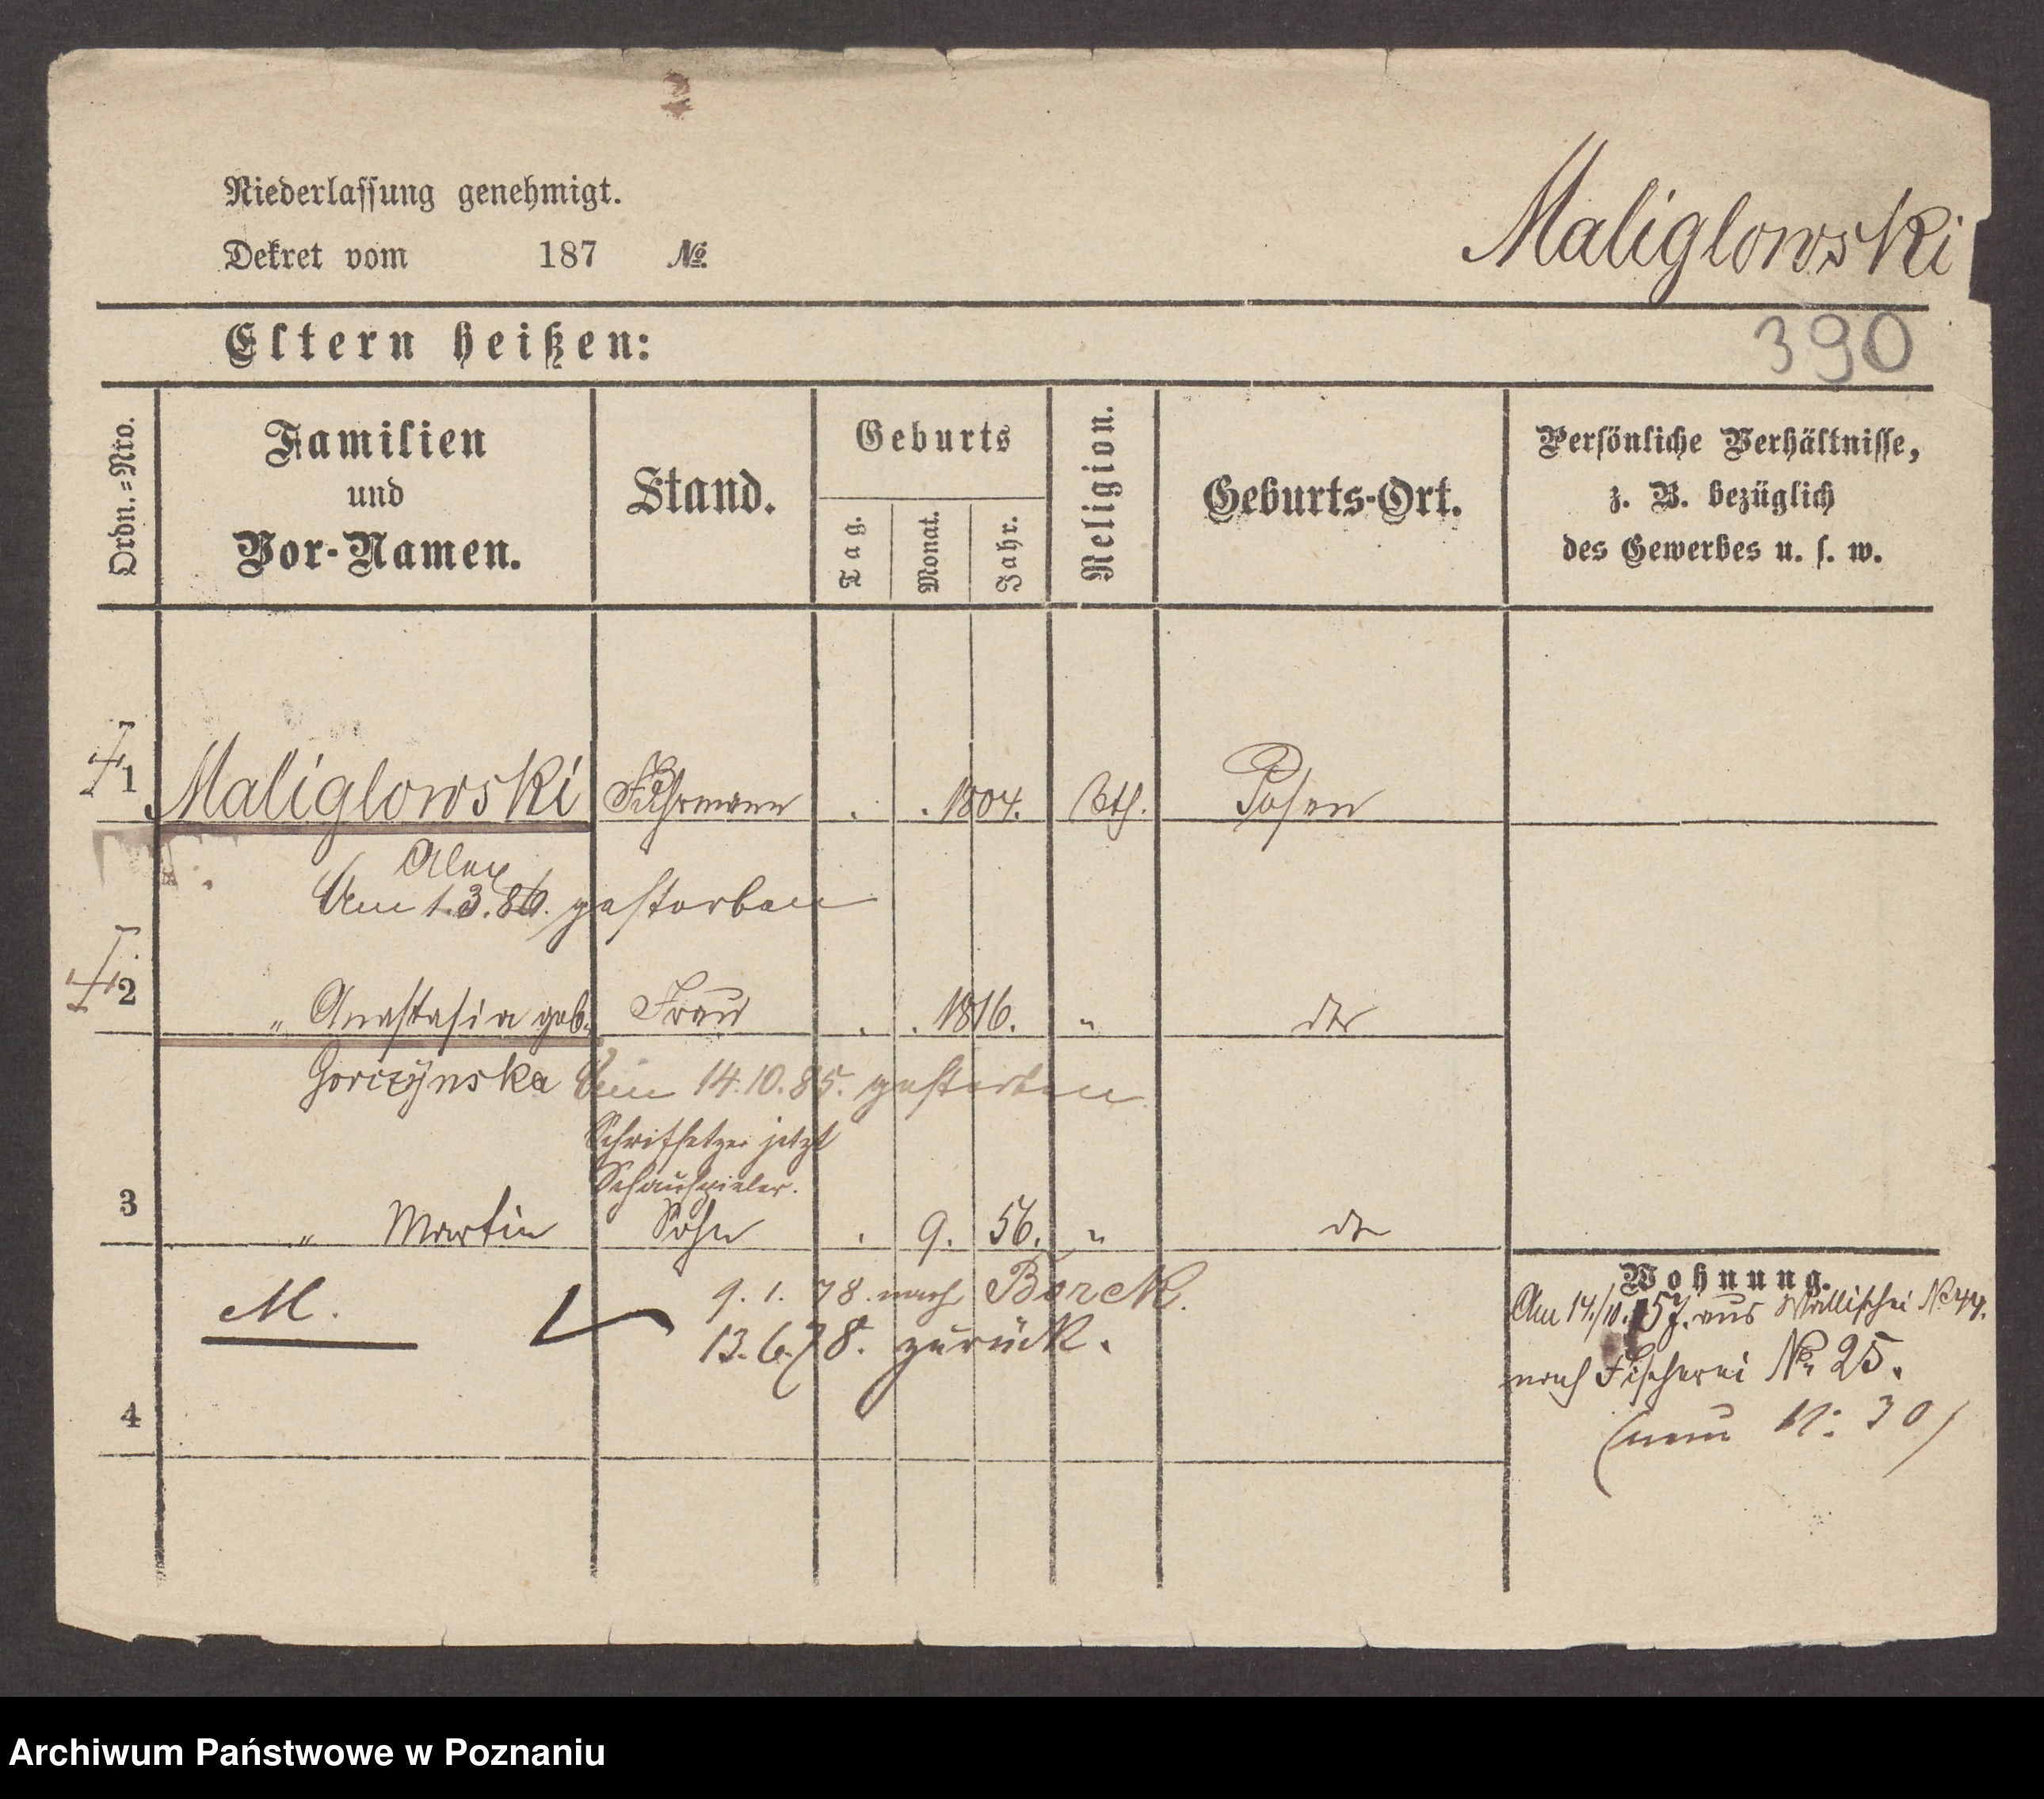 Niederlassung genehmigt.
Dekret vom 187 №
Maliglowski
390
Eltern heißen:
Ordn.=Nro.
Familien
und
Vor-Namen.
Stand.
Geburts
Tag.
Monat.
Jahr.
Religion.
Geburts-Ort.
Persönliche Verhältnisse,
z. B. bezüglich
des Gewerbes u. s. w.
1 Maliglowski Fuhrmann . . 1804. Cth. Posen
Alex
Am 1.3.86. gestorben
2 " Anastasia geb. Frau . . 1816. " dto
Gorizÿnska Am 14.10.85. gestorben
Schriftsetzer jetzt
Schauspieler.
3 " Martin Sohn . 9. 56. " do
Wohnung.
M. 9. 1. 78. nach Borek.
13.6.78. zurück.
Am 14./10. 57. aus Wallischei No 44.
nach Fischerei No 25.
(neu N: 30)
4
Archiwum Państwowe w Poznaniu